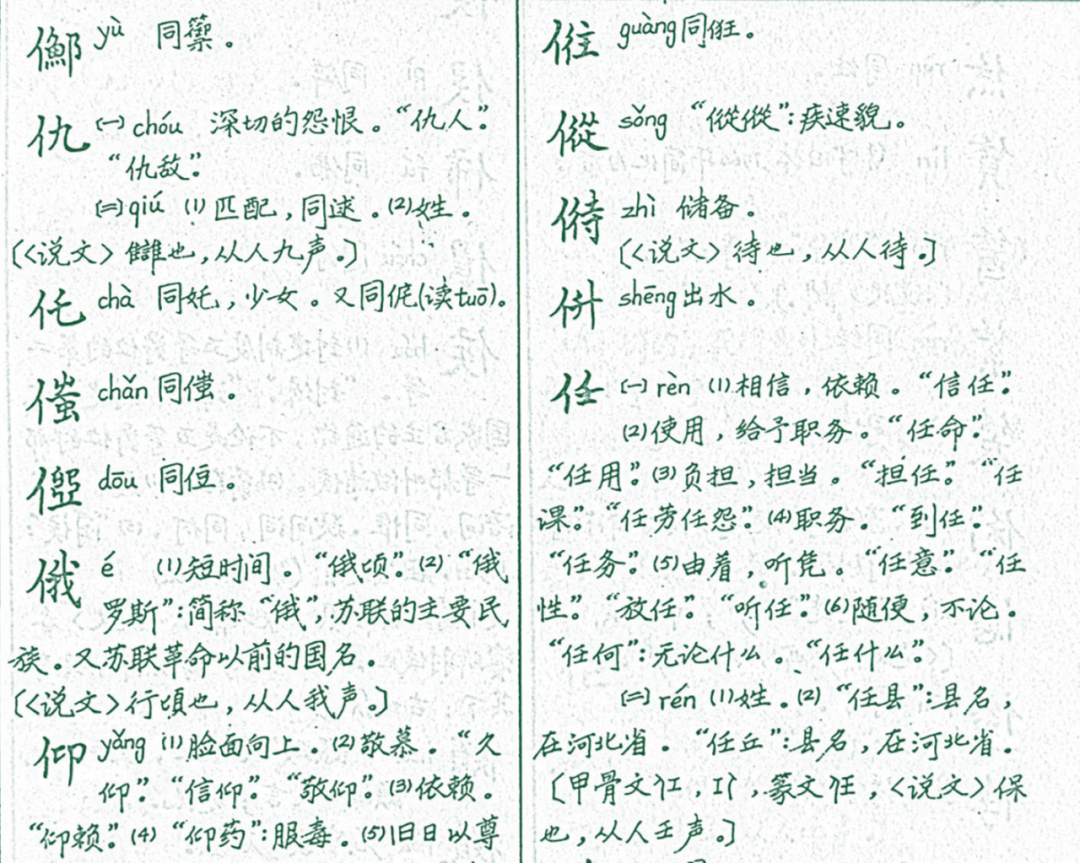 yù 同籞。
仇 ㈠ chóu 深切的怨恨。“仇人”。
“仇敌”。
㈡ qiú ⑴匹配,同逑。⑵姓。
[〈说文〉雔也,从人九声。]
仛 chà 同奼,少女。又同侂(读tuō)。
chǎn 同
dōu 同
俄 é ⑴短时间。“俄顷”。⑵“俄
罗斯”:简称“俄”,苏联的主要民
族。又苏联革命以前的国名。
[〈说文〉行顷也,从人我声。]
仰 yǎng ⑴脸面向上。⑵敬慕。“久
仰”。“信仰”。“敬仰”。⑶依赖。
“仰赖”。⑷“仰药”:服毒。⑸旧日以尊
guàng 同俇。
傱 sǒng “傱傱”:疾速貌。
偫 zhì 储备。
[〈说文〉待也,从人待。]
shēng 出水。
任 ㈠ rèn ⑴相信,依赖。“信任”。
⑵使用,给予职务。“任命”。
“任用”。⑶负担,担当。“担任”。“任
课”。“任劳任怨”。⑷职务。“到任”。
“任务”。⑸由着,听凭。“任意”。“任
性”。“放任”。“听任”。⑹随便,不论。
“任何”:无论什么。“任什么”。
㈡ rén ⑴姓。⑵“任县”:县名,
在河北省。“任丘”:县名,在河北省。
[甲骨文 , ,篆文 ,〈说文〉保
也,从人壬声。]